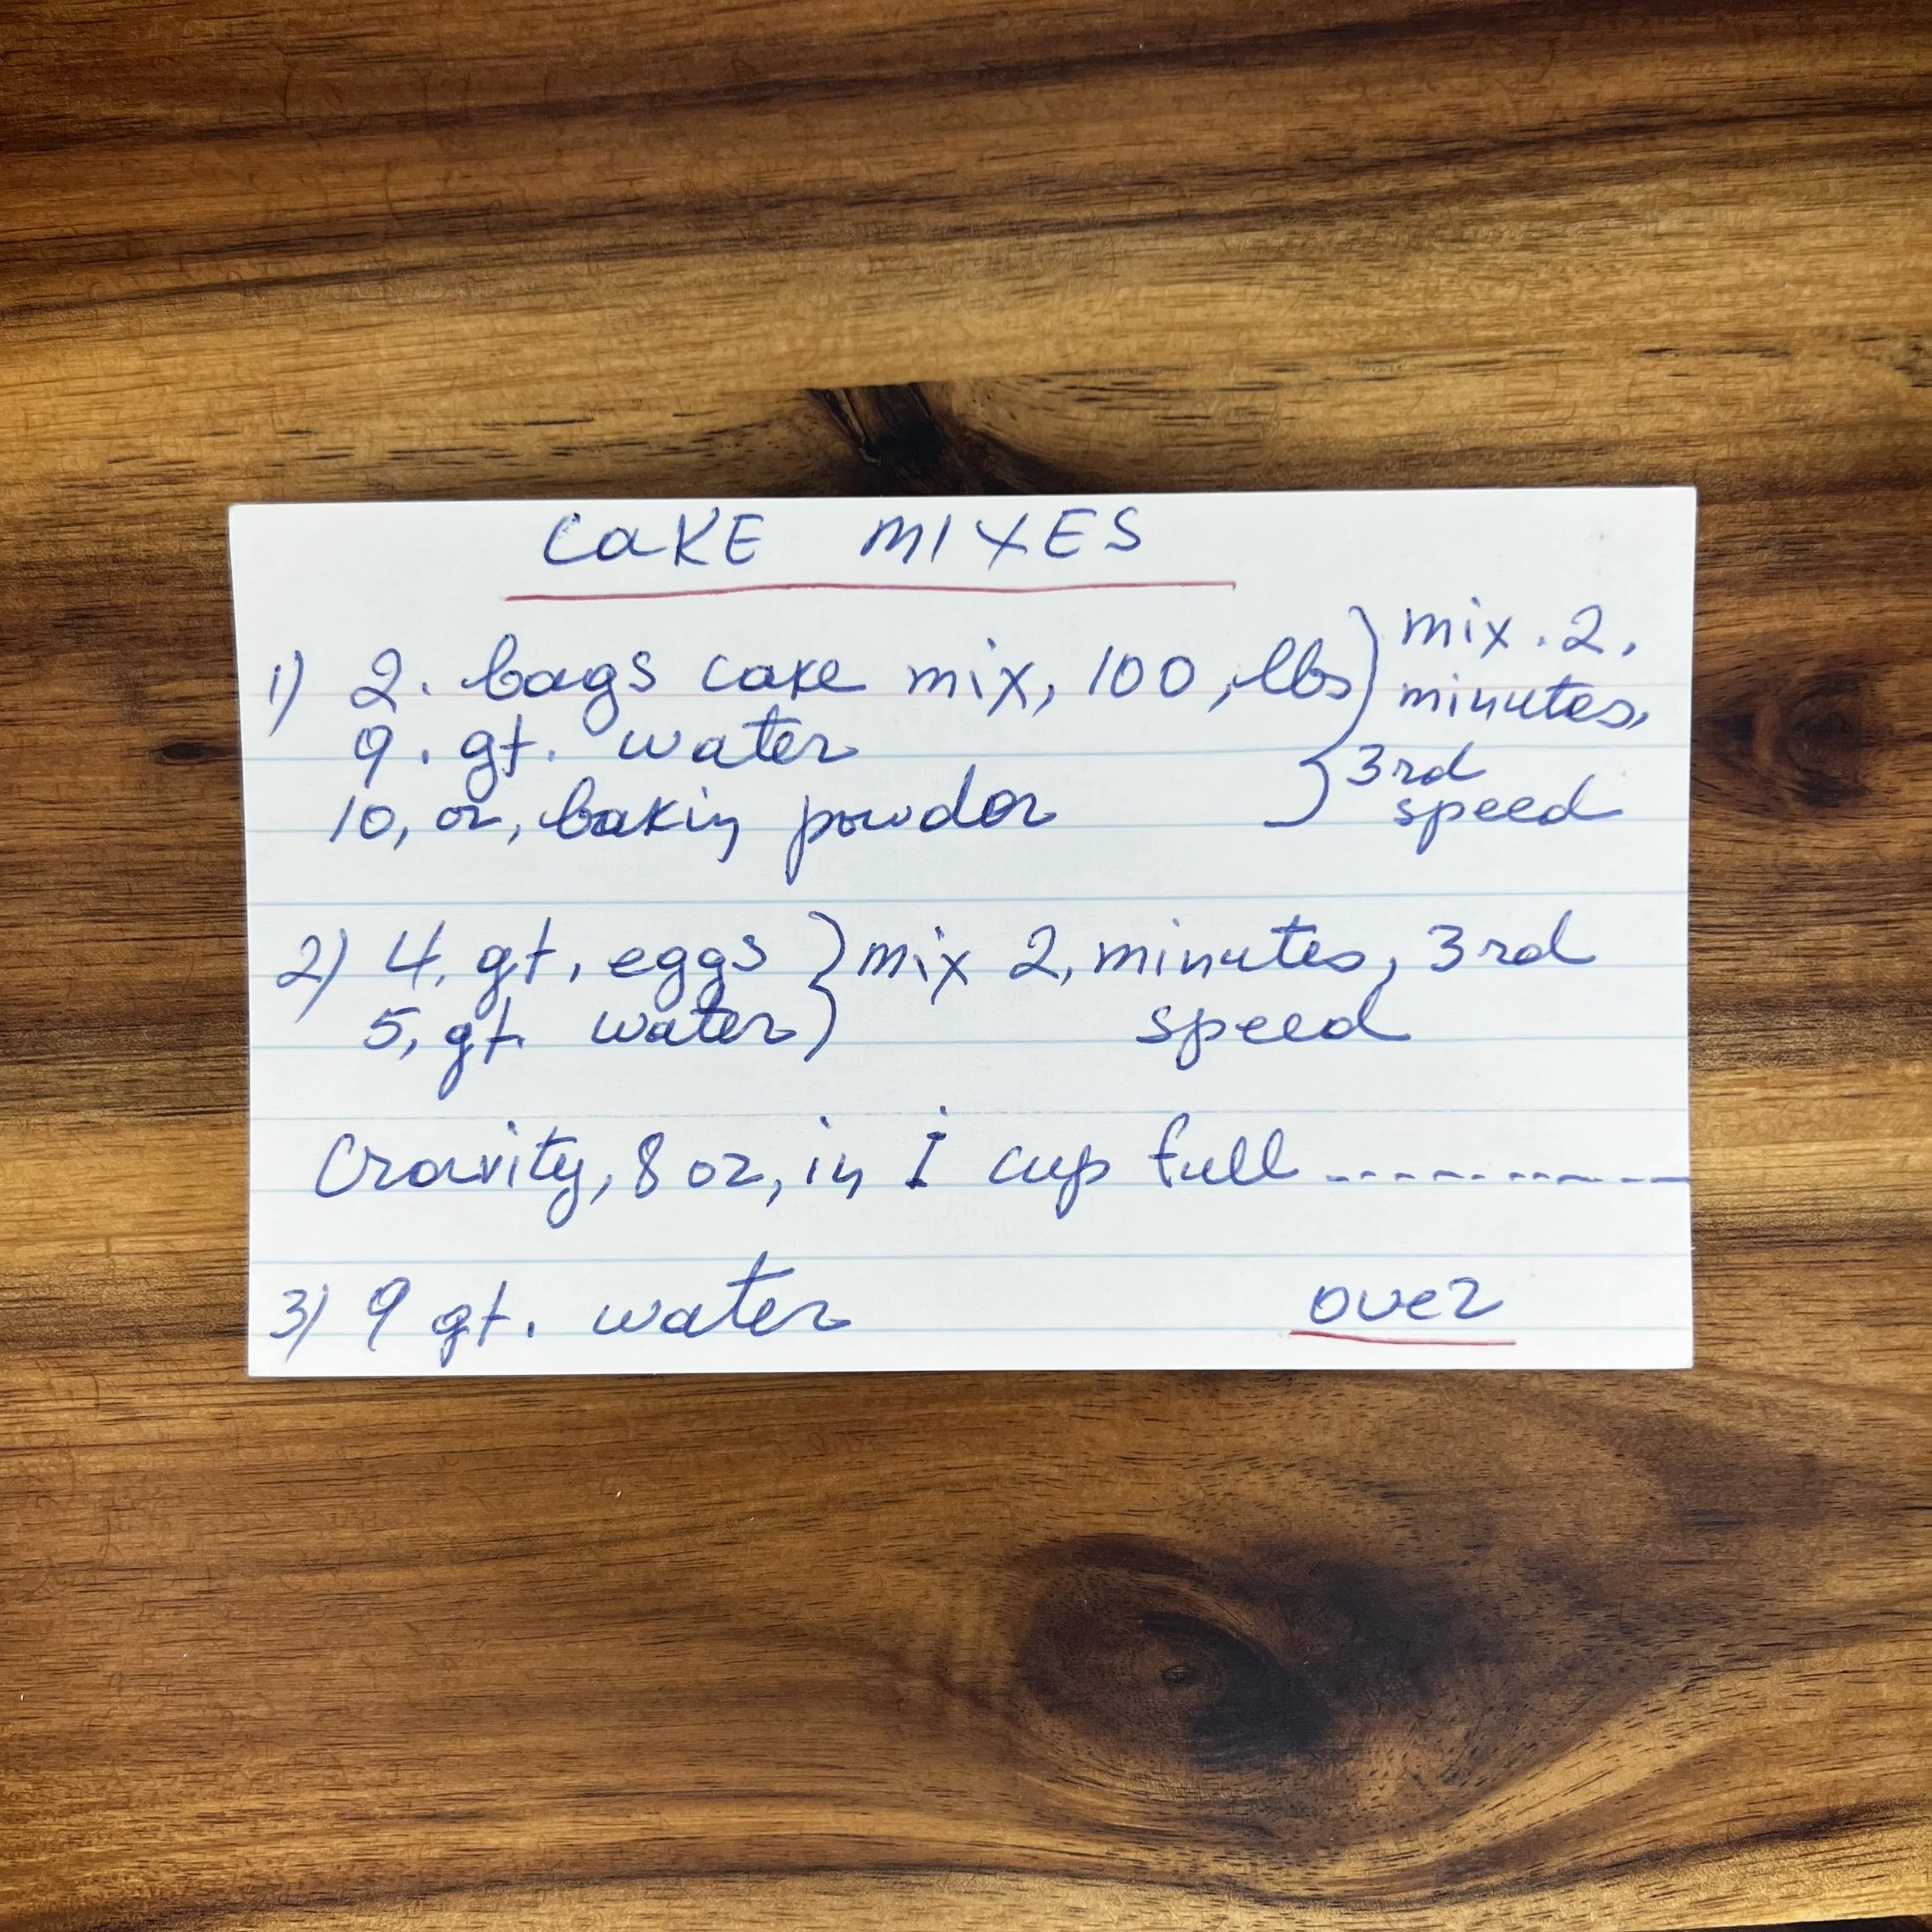 CAKE MIXES
1) 2. bags cake mix, 100, lbs } mix. 2, minutes,
9. qt. water
10, oz, bakin powder } 3rd speed
2) 4, qt, eggs } mix 2, minutes, 3rd
5, qt. water speed
Gravity, 8 oz, in 1 cup full
3) 9 qt. water over